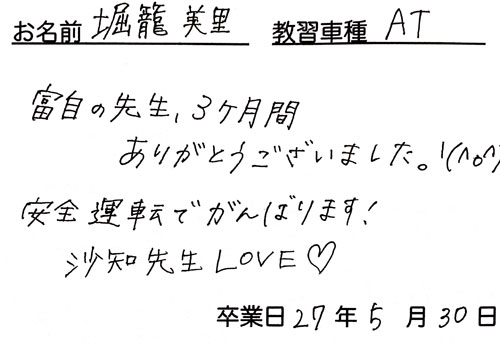 お名前 堀籠 美里 教習車種 AT
富自の先生、3ケ月間
ありがとうございました。!(^o^)
安全運転でがんばります!
沙知先生LOVE♡
卒業日27年5月30日